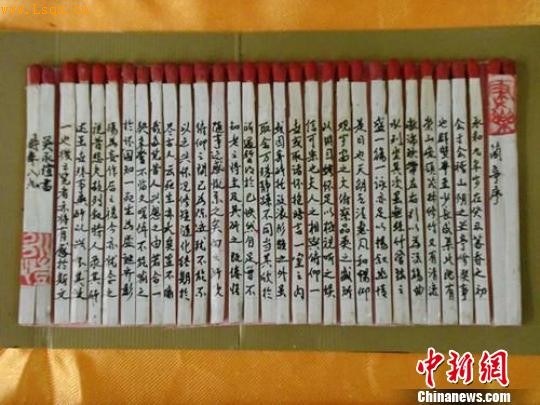 蘭亭序
永和九年歲在癸丑暮春之初
會于會稽山陰之蘭亭脩禊事
也群賢畢至少長咸集此地有
崇山峻領茂林脩竹又有清流
激湍暎帶左右引以為流觴曲
水列坐其次雖無絲竹管弦之
盛一觴一詠亦足以暢敘幽情
是日也天朗氣清惠風和暢仰
觀宇宙之大俯察品類之盛所
以遊目騁懷足以極視聽之娛
信可樂也夫人之相與俯仰一
世或取諸懷抱悟言一室之內
或因寄所託放浪形骸之外雖
取舍萬殊靜躁不同當其欣於
所遇暫得於己快然自足不
知老之將至及其所之既惓情
隨事遷感慨係之矣向之所欣
俛仰之間已為陳迹猶不能不
以之興懷況脩短隨化終期於
盡古人云死生亦大矣豈不痛
哉每覽昔人興感之由若合一
契未嘗不臨文嗟悼不能喻之
於懷固知一死生為虛誕齊彭
殤為妄作後之視今亦由今之
視昔悲夫故列敘時人錄其所
述雖世殊事異所以興懷其致
一也後之覽者亦將有感於斯文
書
中新网
Chinanews.com